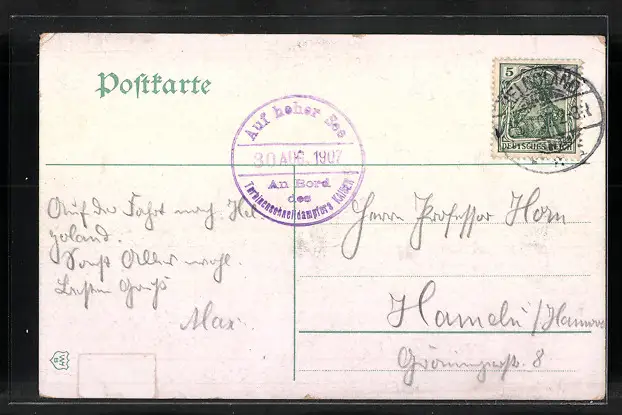 Postkarte
5
DEUTSCHES REICH
HELGOLAND
Auf hoher See
30 AUG. 1907
An Bord
des
Turbinenschnelldampfers KAISER
Auf der Fahrt nach Hel-
goland.
Sonst Alles wohl.
Besten Gruß
Max
Herrn Professor Horn
Hameln / Hannover
Gröningerstr. 8